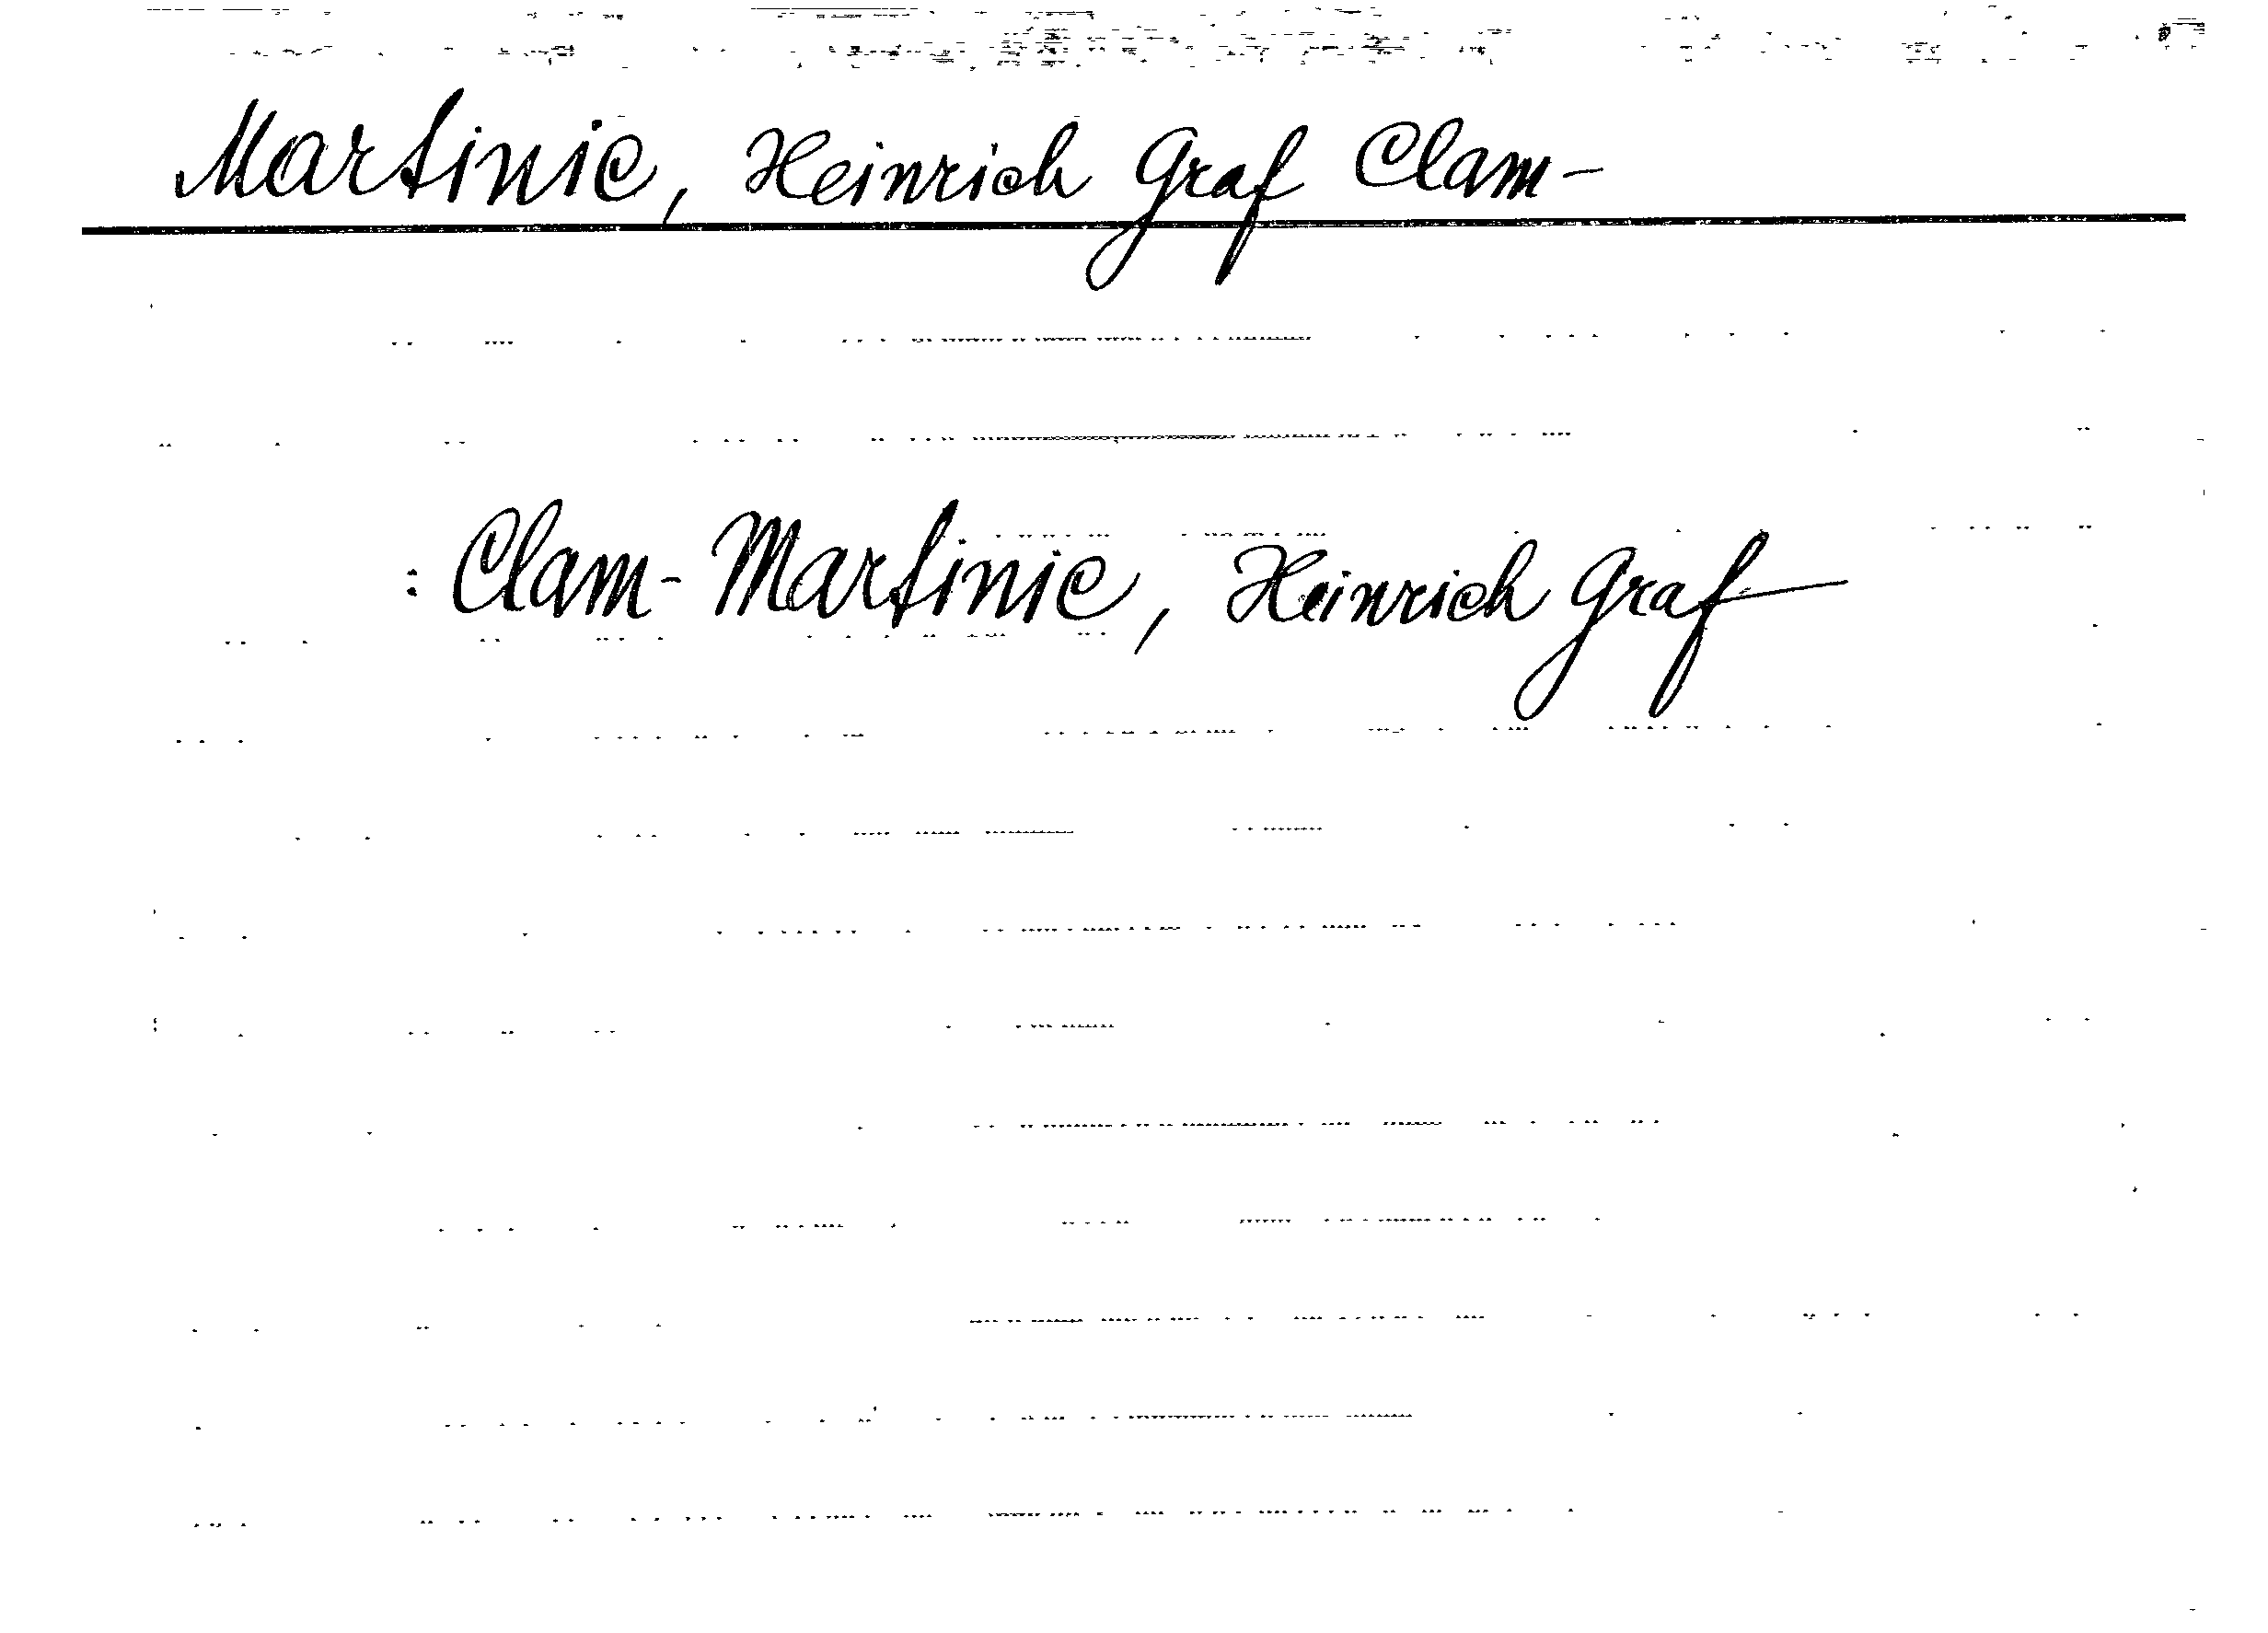 Martinic, Heinrich Graf Clam-
: Clam-Martinic, Heinrich Graf